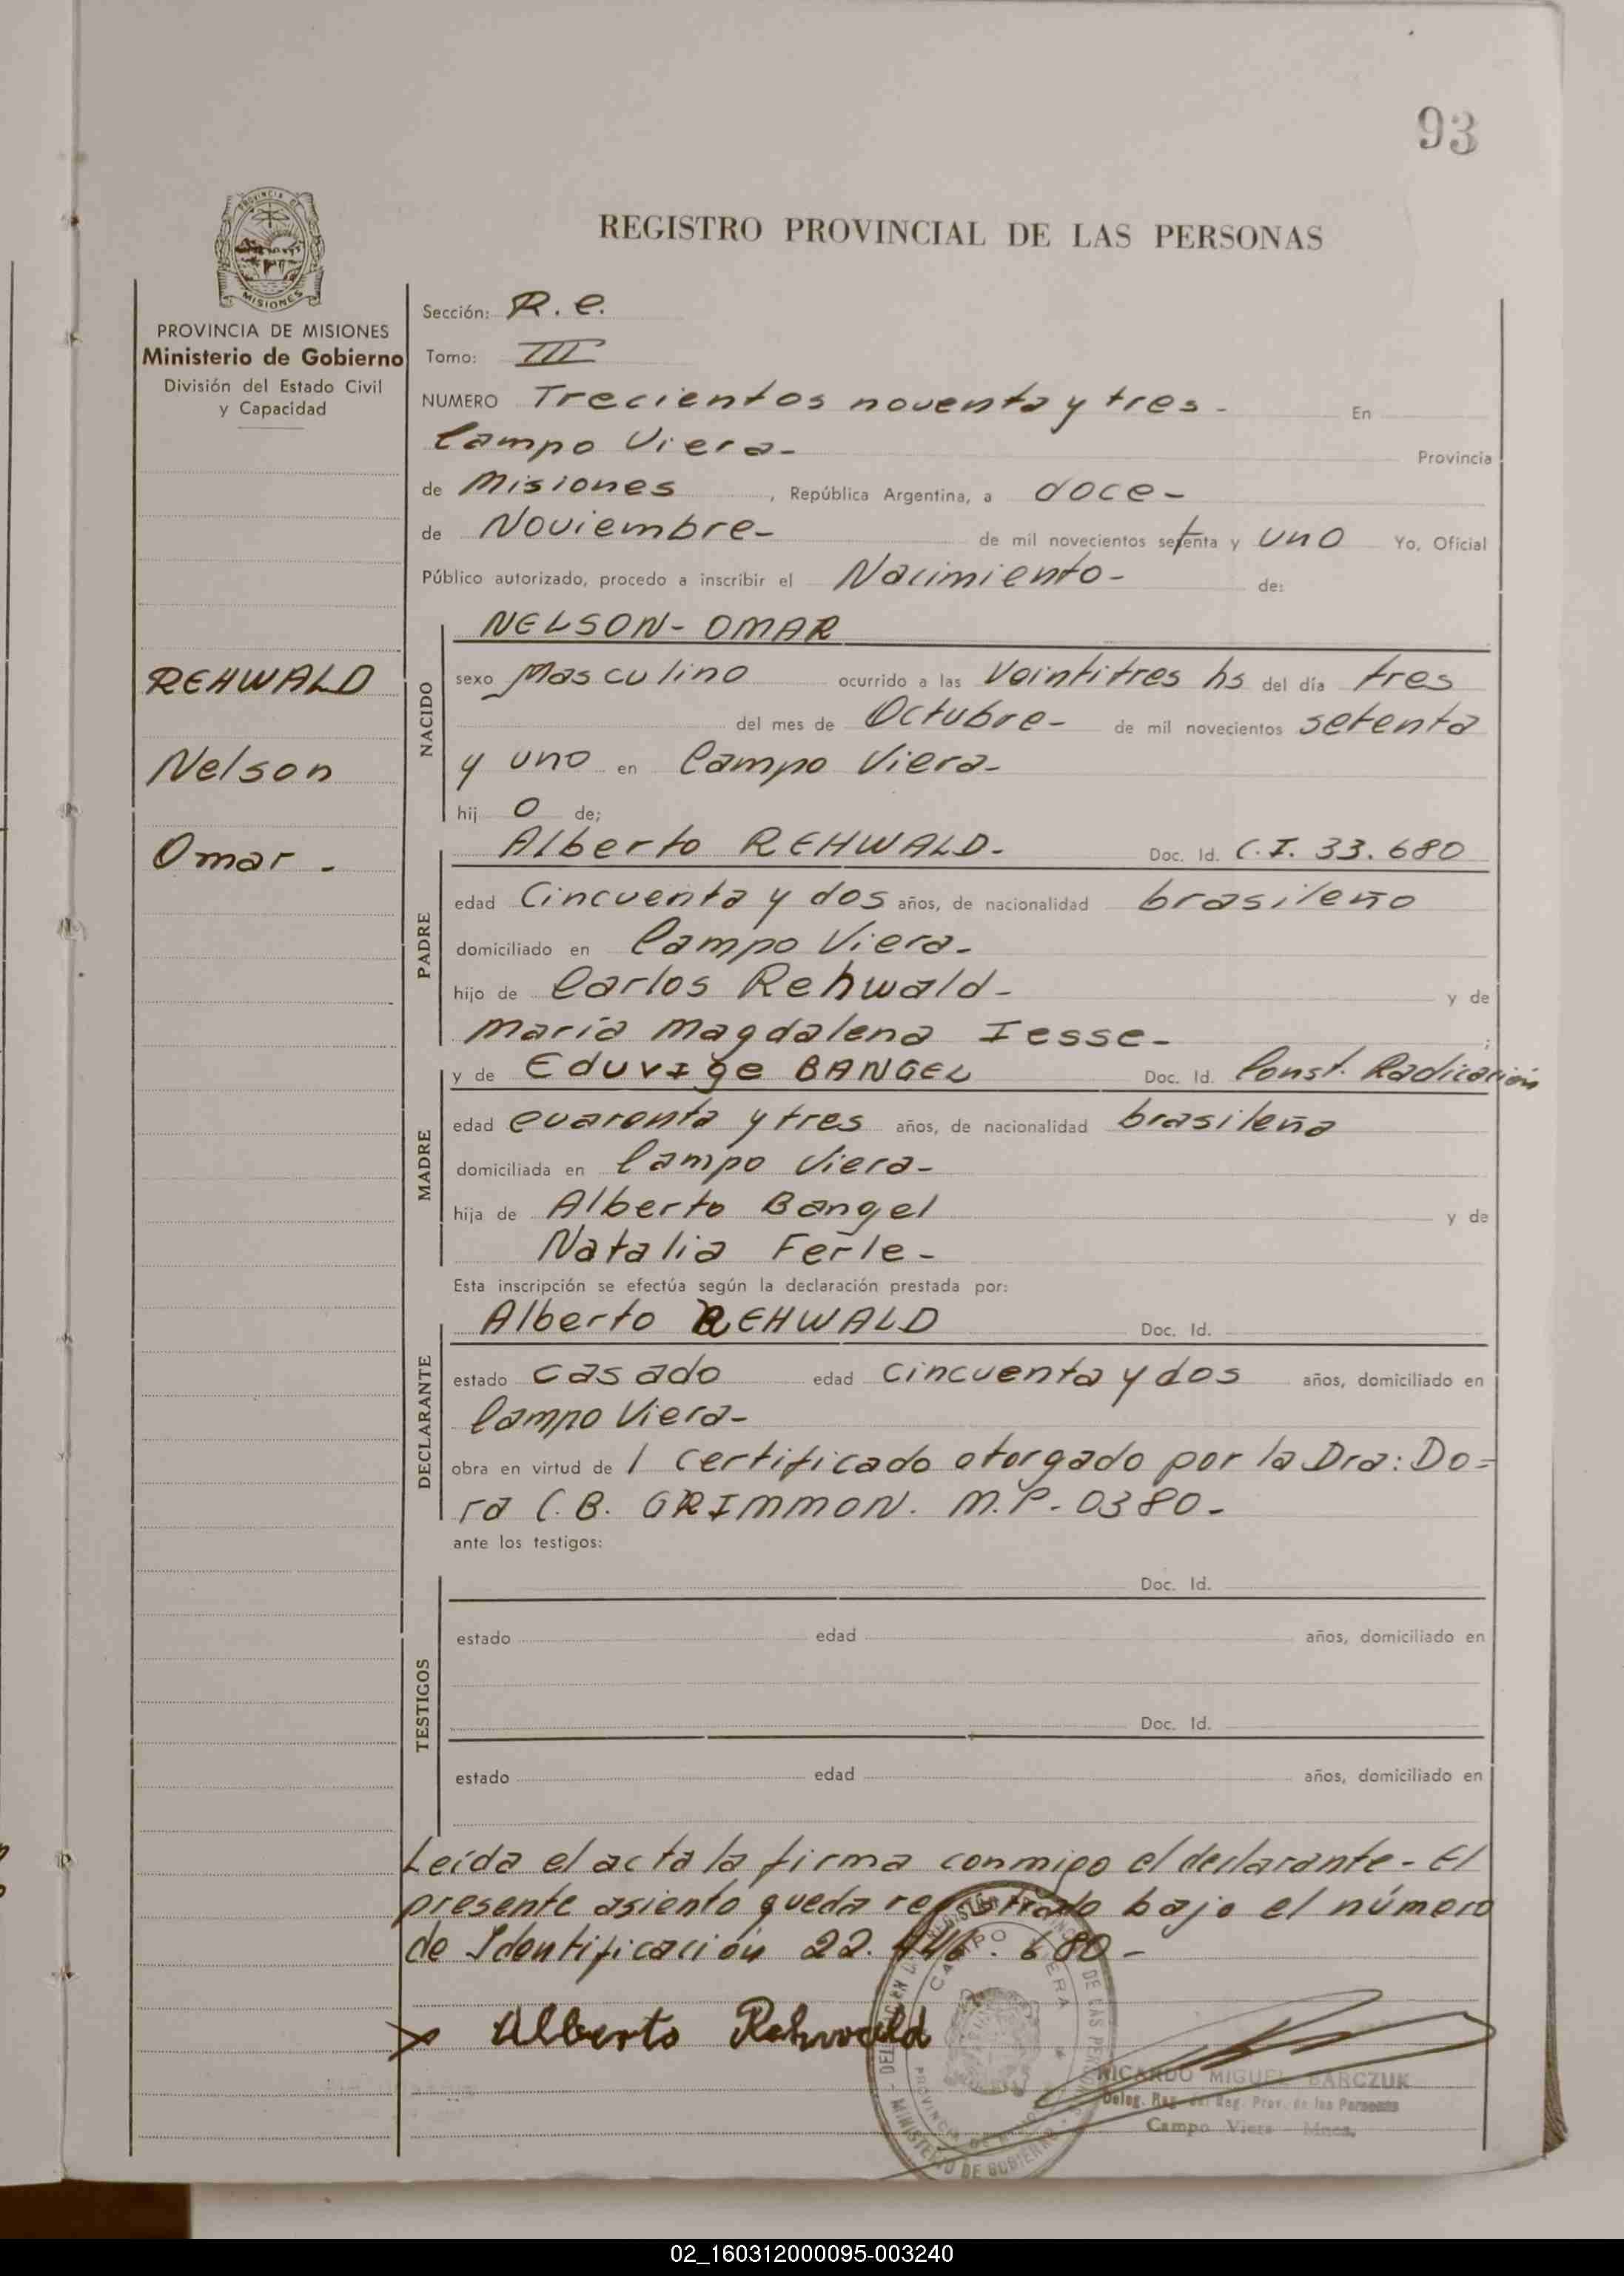 93
REGISTRO PROVINCIAL DE LAS PERSONAS
PROVINCIA DE
MISIONES
PROVINCIA DE MISIONES
Ministerio de Gobierno
División del Estado Civil
y Capacidad
REHWALD
Nelson
Omar -
Sección: R. e.
Tomo: III
NUMERO Trecientos noventa y tres - En
Campo Viera - Provincia
de Misiones, República Argentina, a doce -
de Noviembre - de mil novecientos setenta y uno Yo, Oficial
Público autorizado, procedo a inscribir el Nacimiento - de:
NACIDO
NELSON - OMAR
sexo Masculino ocurrido a las Veintitres hs del día tres
del mes de Octubre - de mil novecientos setenta
y uno en Campo Viera -
hij o de;
PADRE
Alberto REHWALD - Doc. Id. C.I. 33.680
edad Cincuenta y dos años, de nacionalidad brasileño
domiciliado en Campo Viera -
hijo de Carlos Rehwald - y de
María Magdalena Iesse - ;
MADRE
y de Eduvige BANGEL Doc. Id. Const. Radicación
edad cuarenta y tres años, de nacionalidad brasileña
domiciliada en Campo Viera -
hija de Alberto Bangel y de
Natalia Ferle -
Esta inscripción se efectúa según la declaración prestada por:
DECLARANTE
Alberto REHWALD Doc. Id.
estado casado edad cincuenta y dos años, domiciliado en
Campo Viera -
obra en virtud de 1 certificado otorgado por la Dra: Do=
ra C. B. GRIMMON. M.P. - 0380 -
ante los testigos:
TESTIGOS
Doc. Id.
estado edad años, domiciliado en
Doc. Id.
estado edad años, domiciliado en
Leída el acta la firma conmigo el declarante - El
presente asiento queda registrado bajo el número
de Identificación 22. 446. 680 -
Alberto Rehwald
CAMPO VIERA
MINISTERIO DE GOBIERNO
RICARDO MIGUEL BARCZUK
Deleg. Reg. del Reg. Prov. de las Personas
Campo Viera - Mnes.
02_160312000095-003240